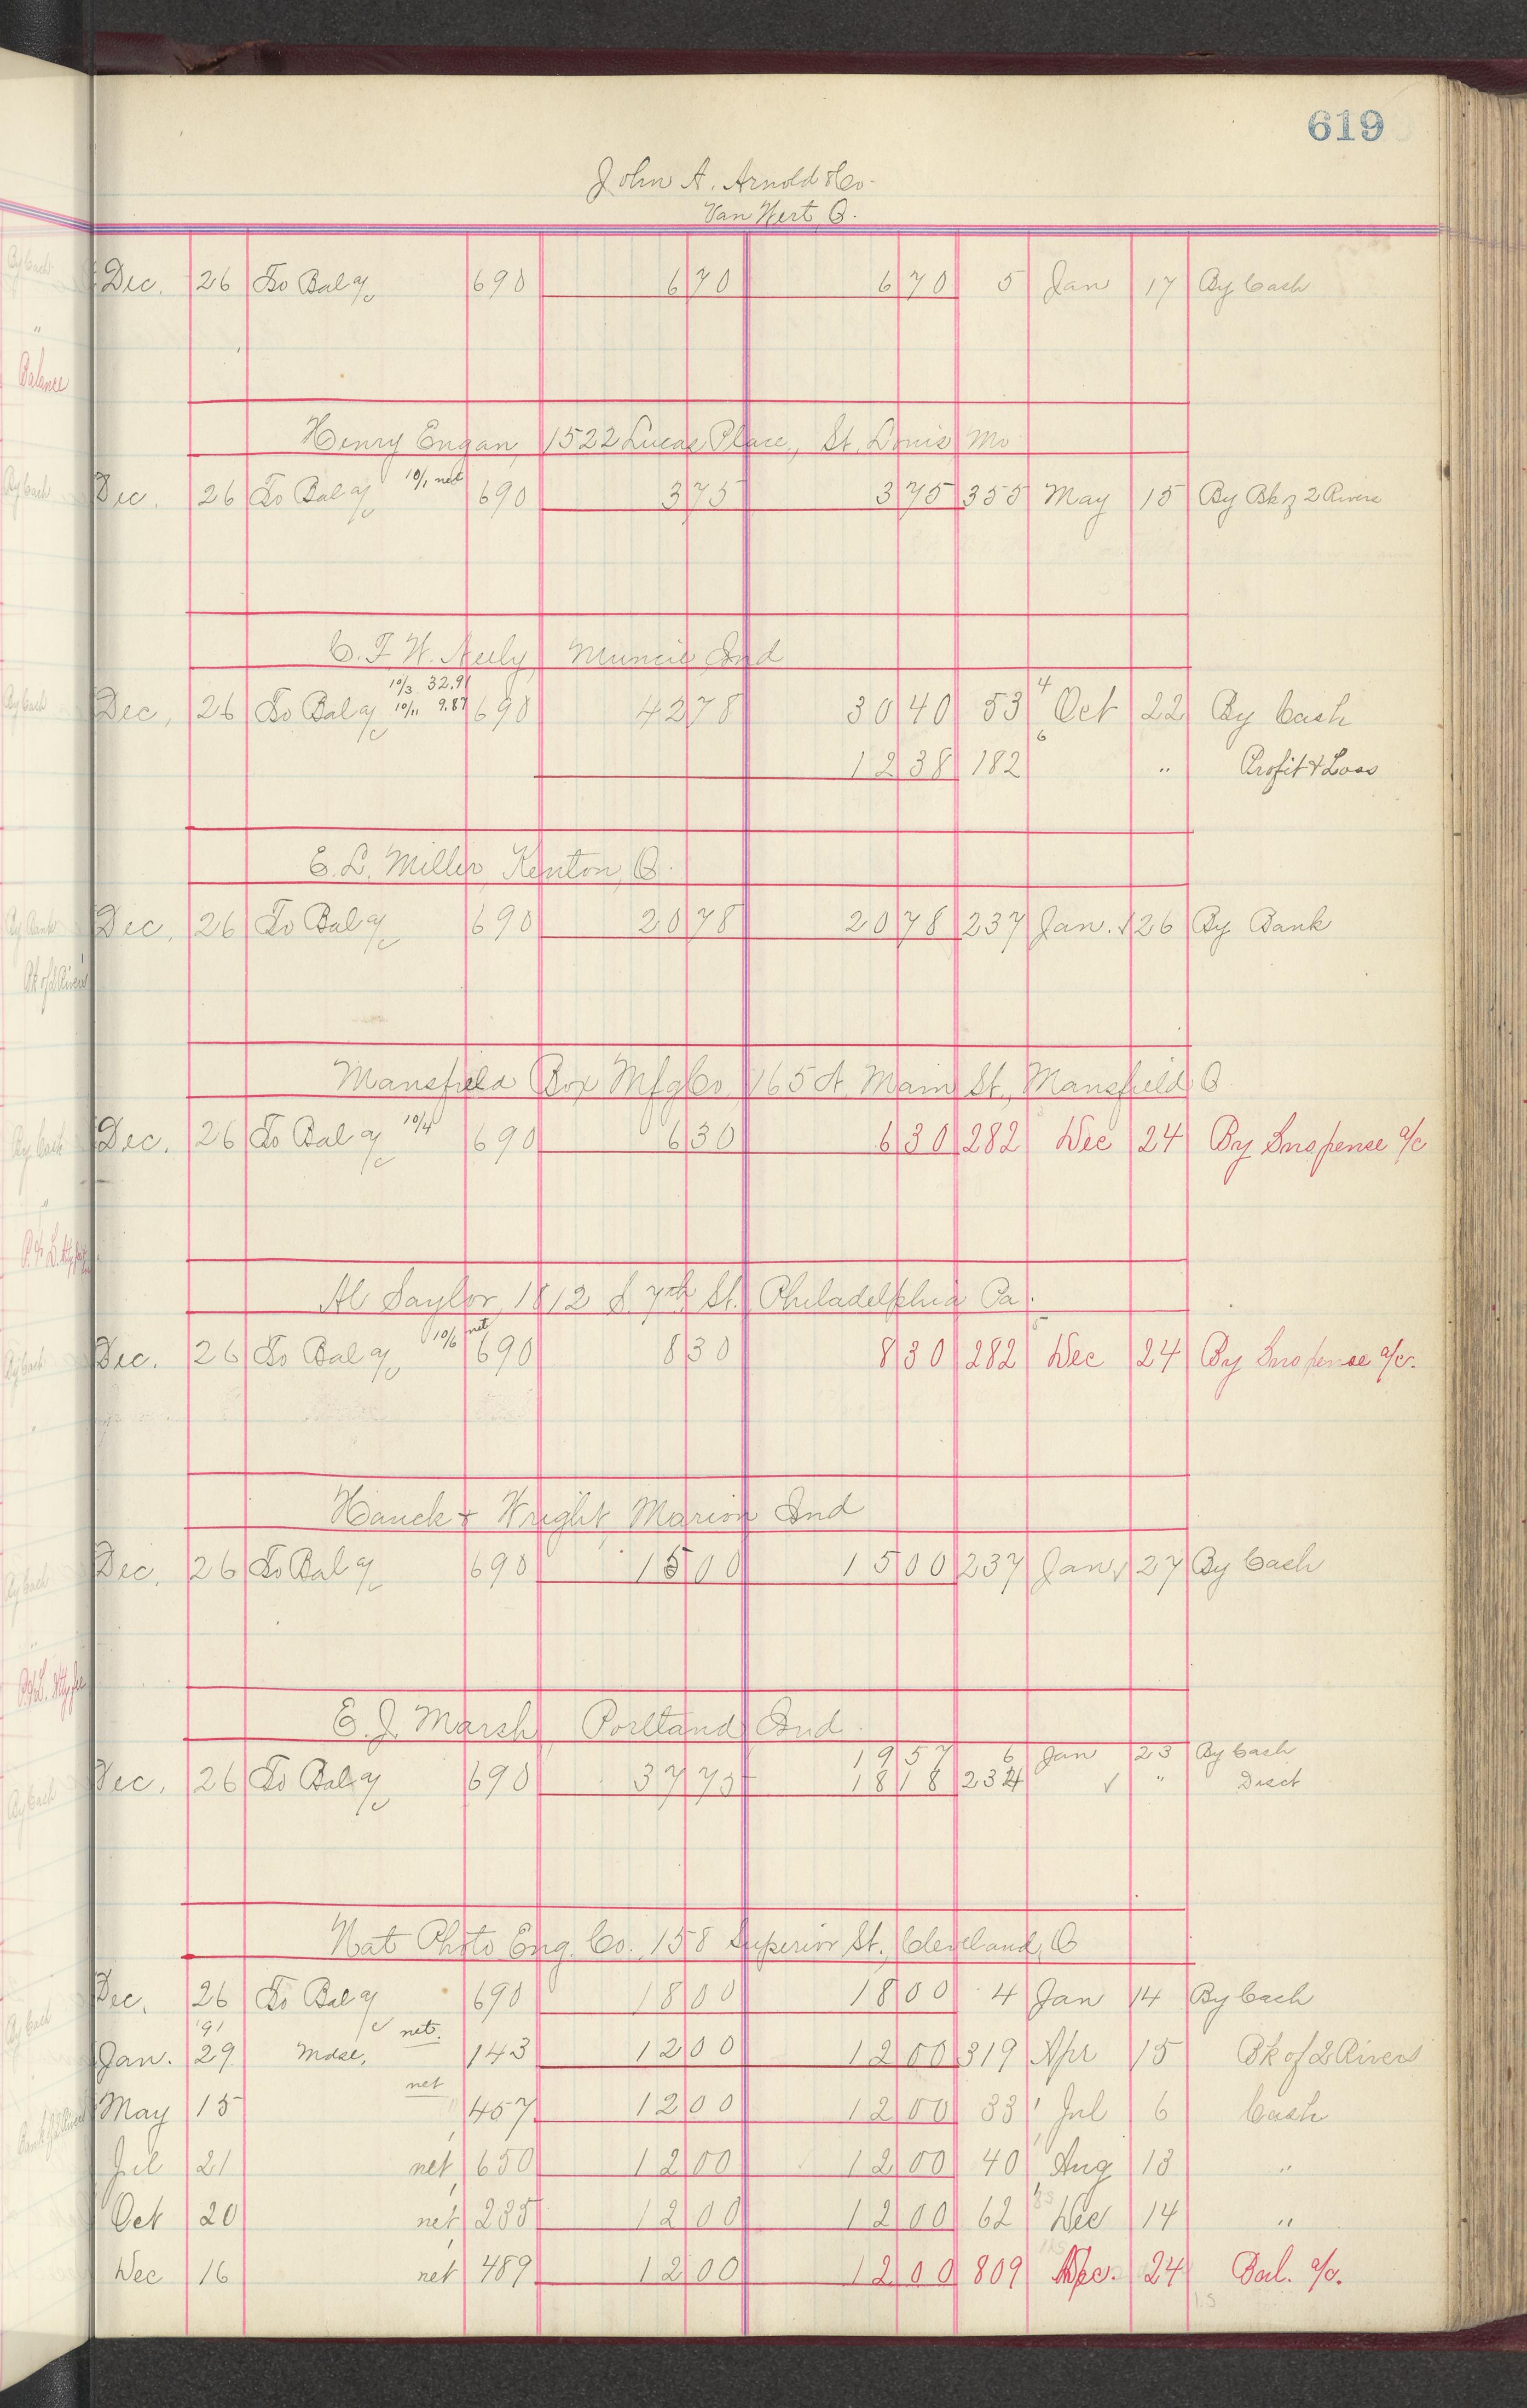 619
John A. Arnold & Co.
Van Wert, O.
Dec. 26 To Bal a/c 690 6 70 6 70 5 Jan 17 By Cash
Henry Engan, 1522 Lucas Place, St. Louis Mo
Dec. 26 To Bal a/c 10/1 net 690 3 75 3 75 355 May 15 By Bk of 2 Rivers
C. F. W. Neely, Muncie Ind
10/3 32.91
Dec. 26 To Bal a/c 10/11 9.87 690 42 78 30 40 53 4 Oct 22 By Cash
12 38 182 6 " Profit & Loss
E. L. Miller, Kenton, O.
Dec. 26 To Bal a/c 690 20 78 20 78 237 Jan. √ 26 By Bank
Mansfield Box Mfg Co, 165 N. Main St., Mansfield O
Dec. 26 To Bal a/c 10/4 690 6 30 6 30 282 Dec 24 By Suspense a/c
Al Saylor, 1812 S. 7th St. Philadelphia Pa.
Dec. 26 To Bal a/c 10/6 net 690 8 30 8 30 282 Dec 24 By Suspense a/c.
Hauck & Wright, Marion Ind
Dec. 26 To Bal a/c 690 15 00 15 00 237 Jan √ 27 By Cash
E. J. Marsh, Portland Ind.
19 57 6 Jan 23 By Cash
Dec. 26 To Bal a/c 690 37 75 18 18 234 √ " Disct
Nat Photo Eng. Co. 158 Superior St., Cleveland, O
Dec. 26 To Bal a/c 690 18 00 18 00 4 Jan 14 By Cash
'91
Jan. 29 Mdse, net. 143 12 00 12 00 319 Apr 15 Bk of 2 Rivers
May 15 net 457 12 00 12 00 33 Jul 6 Cash
Jul 21 net 650 12 00 12 00 40 Aug 13 "
Oct 20 net 235 12 00 12 00 62 Dec 14 "
Dec 16 net 489 12 00 12 00 809 Dec. 24 Bal. a/c.